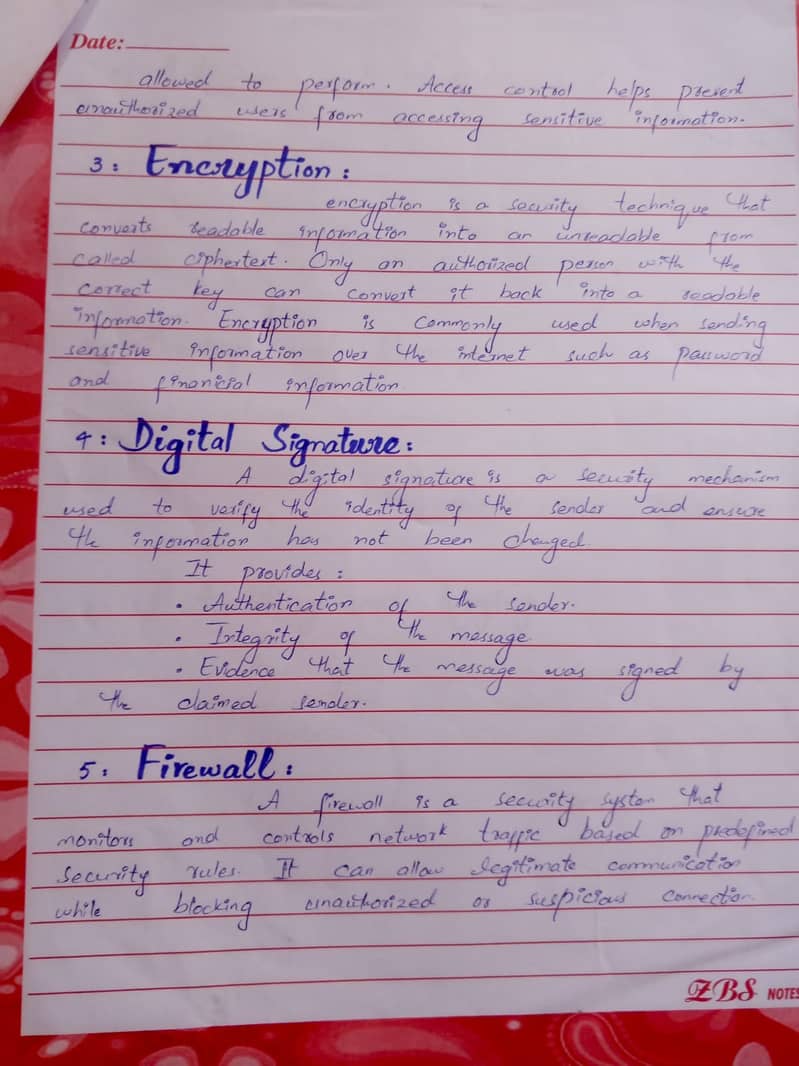 Date:
allowed to perform. Access control helps prevent
unauthorized users from accessing sensitive information.
3: Encryption:
encryption is a security technique that
converts readable information into an unreadable from
called ciphertext. Only an authorized person with the
correct key can convert it back into a readable
information. Encryption is commonly used when sending
sensitive information over the internet such as password
and financial information
4: Digital Signature:
A digital signature is a security mechanism
used to verify the identity of the sender and ensure
the information has not been changed.
It provides:
• Authentication of the sender.
• Integrity of the message
• Evidence that the message was signed by
the claimed sender.
5: Firewall:
A firewall is a security system that
monitors and controls network traffic based on predefined
security rules. It can allow legitimate communication
while blocking unauthorized or suspicious connection.
ZBS NOTES